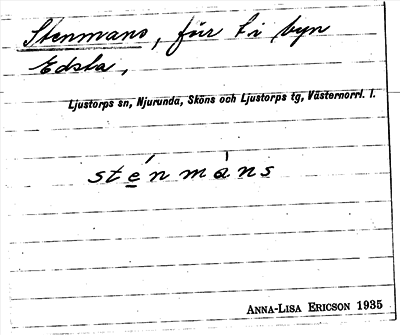 Stenmans, för t. i byn
Edsta,
Ljustorps sn, Njurunda, Sköns och Ljustorps tg, Västernorrl. l.
sténmàns
ANNA-LISA ERICSON 1935